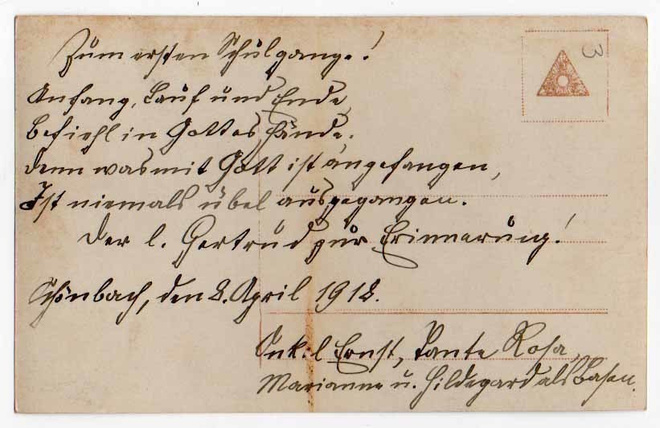 Zum ersten Schulgange!
Anfang, Lauf und Ende,
Befiehl in Gottes Hände.
Denn was mit Gott ist angefangen,
Ist niemals übel ausgegangen.
Der l. Gertrud zur Erinnerung!
Schönbach, den 8. April 1918.
Onkel Ernst, Tante Rosa,
Marianne u. Hildegard als Basen.
3